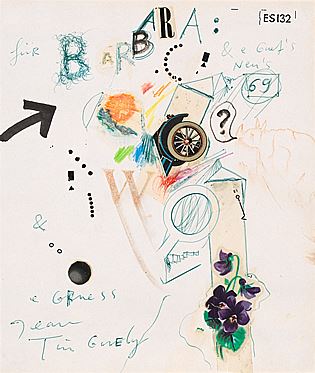 [ES132]
für BARBARA:
& e Guet's
Neu's
69
?
W
&
e GRUESS
Jean
Tinguely